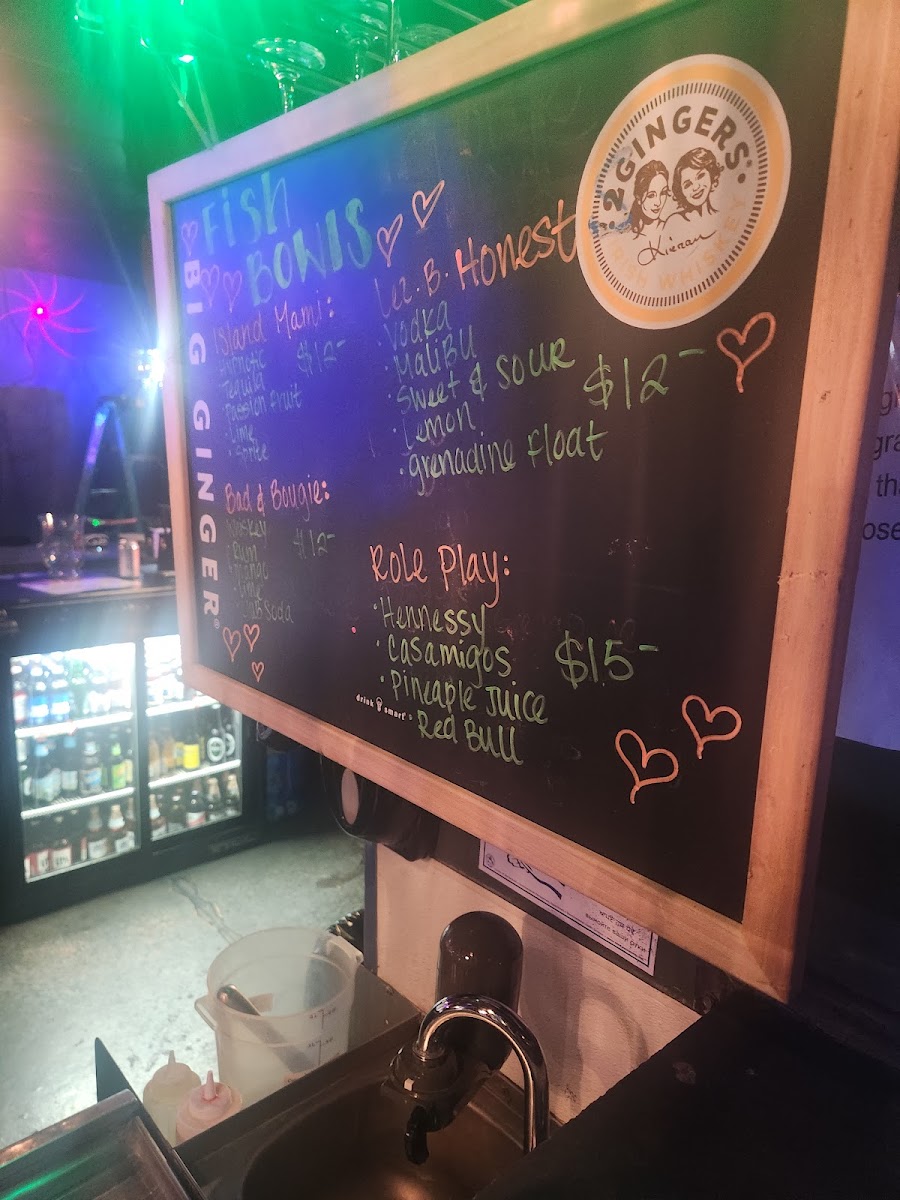 Fish
BOWlS
BIG GINGER®
Island Mami:
Hpnotiq
Tequila
$12-
• Passion fruit
• Lime
• Sprite
Bad & Bougie:
$12-
• Rum
• Mango
• Lime
Lez. B. Honest
• Vodka
• MaliBU
• Sweet & SOUR
• Lemon
• grenadine Float
$12-
Role Play:
• Hennessy
• Casamigos
• Pineaple Juice
Red Bull
$15-
drink smart®
2GINGERS®
Kieran
IRISH WHISKEY